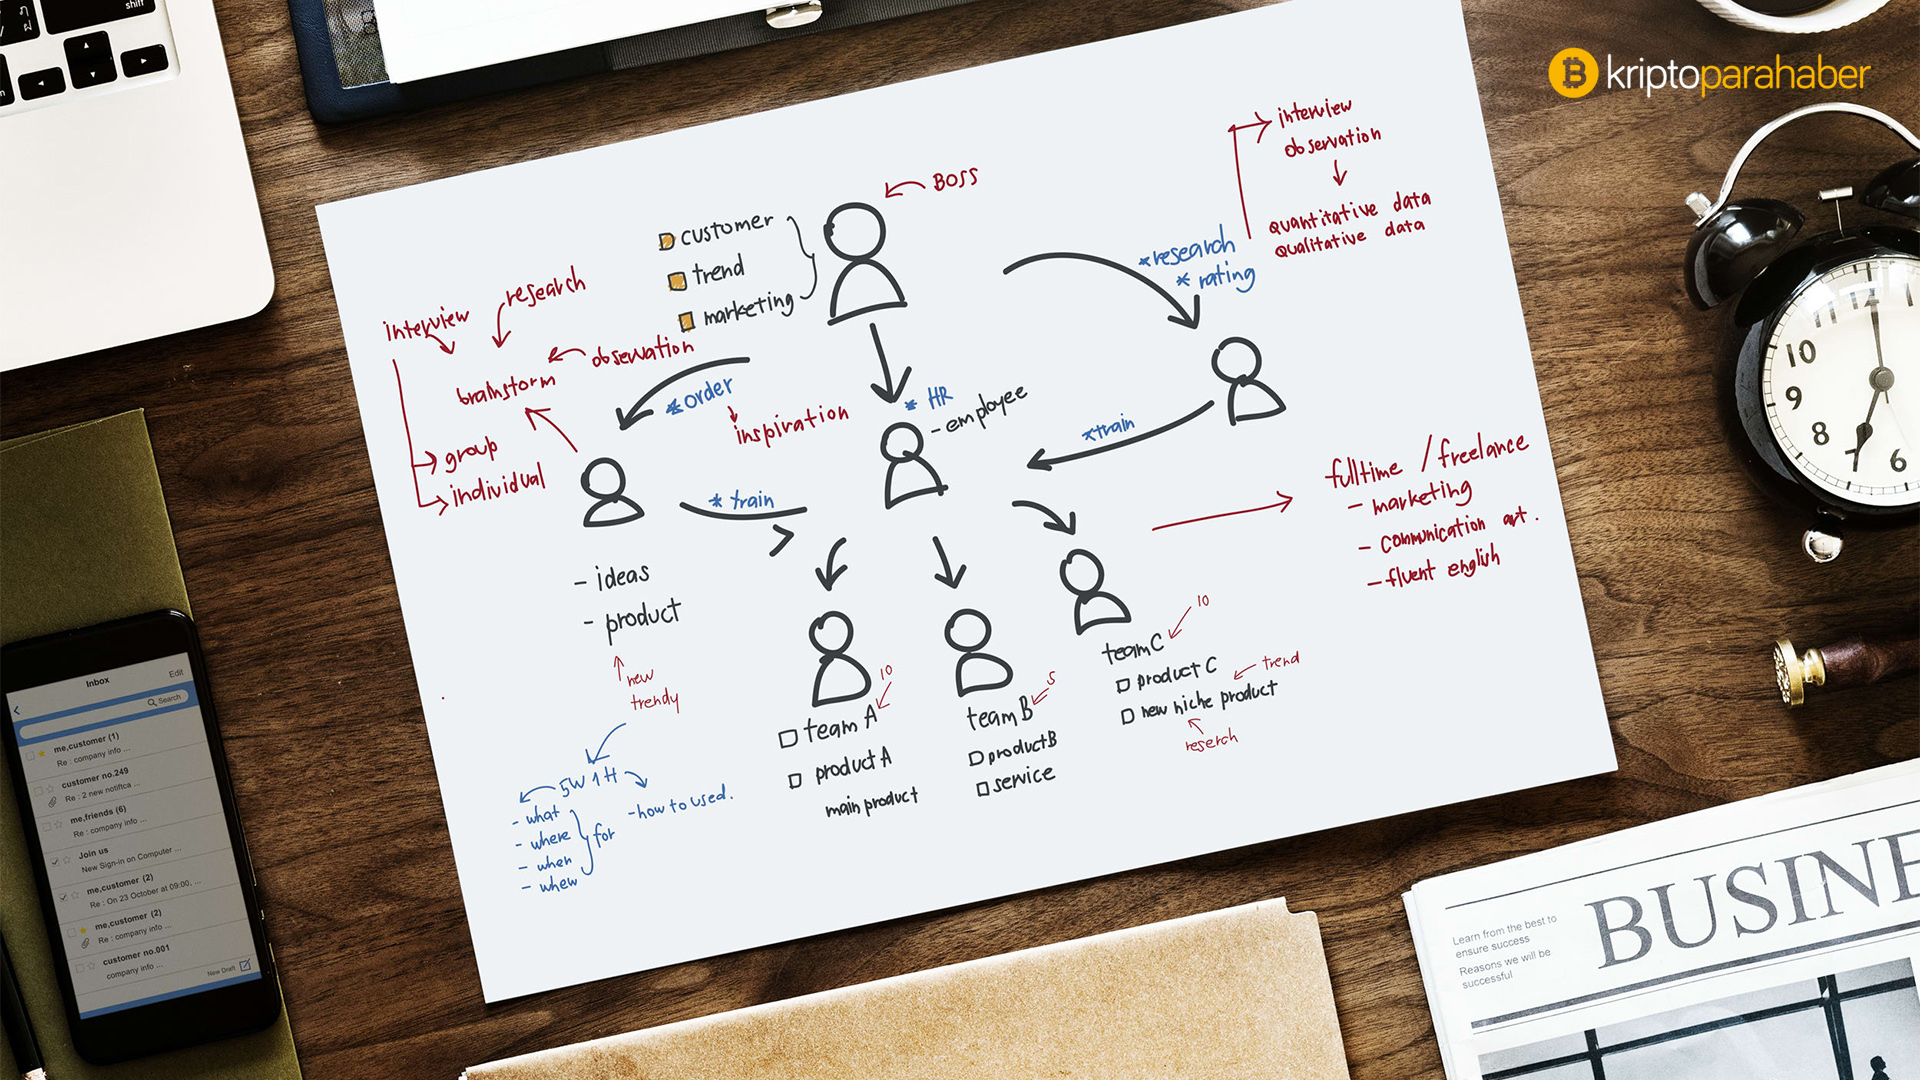 shift
kriptoparahaber
BOSS
customer
trend
marketing
interview
research
observation
brainstorm
group
individual
*order
inspiration
* HR
- employee
*research
* rating
interview
observation
quantitative data
qualitative data
*train
* train
- ideas
- product
new
trendy
5W 1H
- what
- where
- when
- whew
for
- how to used.
10
team A
product A
main product
5
team B
product B
service
10
team C
product C
trend
new niche product
reserch
fulltime / freelance
- marketing
- communication art.
- fluent english
Inbox
Edit
Search
me,customer (1)
Re : company info ...
customer no.249
Re : 2 new notifica ...
me,friends (6)
Re : company info ...
Join us
New Sign-in on Computer ...
me,customer (2)
Re : On 23 October at 09:00, ...
me,customer (2)
Re : company info ...
customer no.001
company info ...
New Draft
11
12
10
9
8
7
6
BUSINE
Learn from the best to
ensure success
Reasons we will be
successful